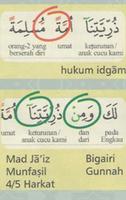 ذُرِّيَّتِنَآ أُمَّةً مُّسْلِمَةً
orang-2 yang berserah diri umat keturunan/ anak cucu kami
hukum idgām
لَّكَ وَمِنْ ذُرِّيَّتِنَآ أُمَّةً
umat keturunan/ anak cucu kami dan dari pada Engkau
Mad Jā'iz Munfaṣil 4/5 Harkat
Bigairi Gunnah